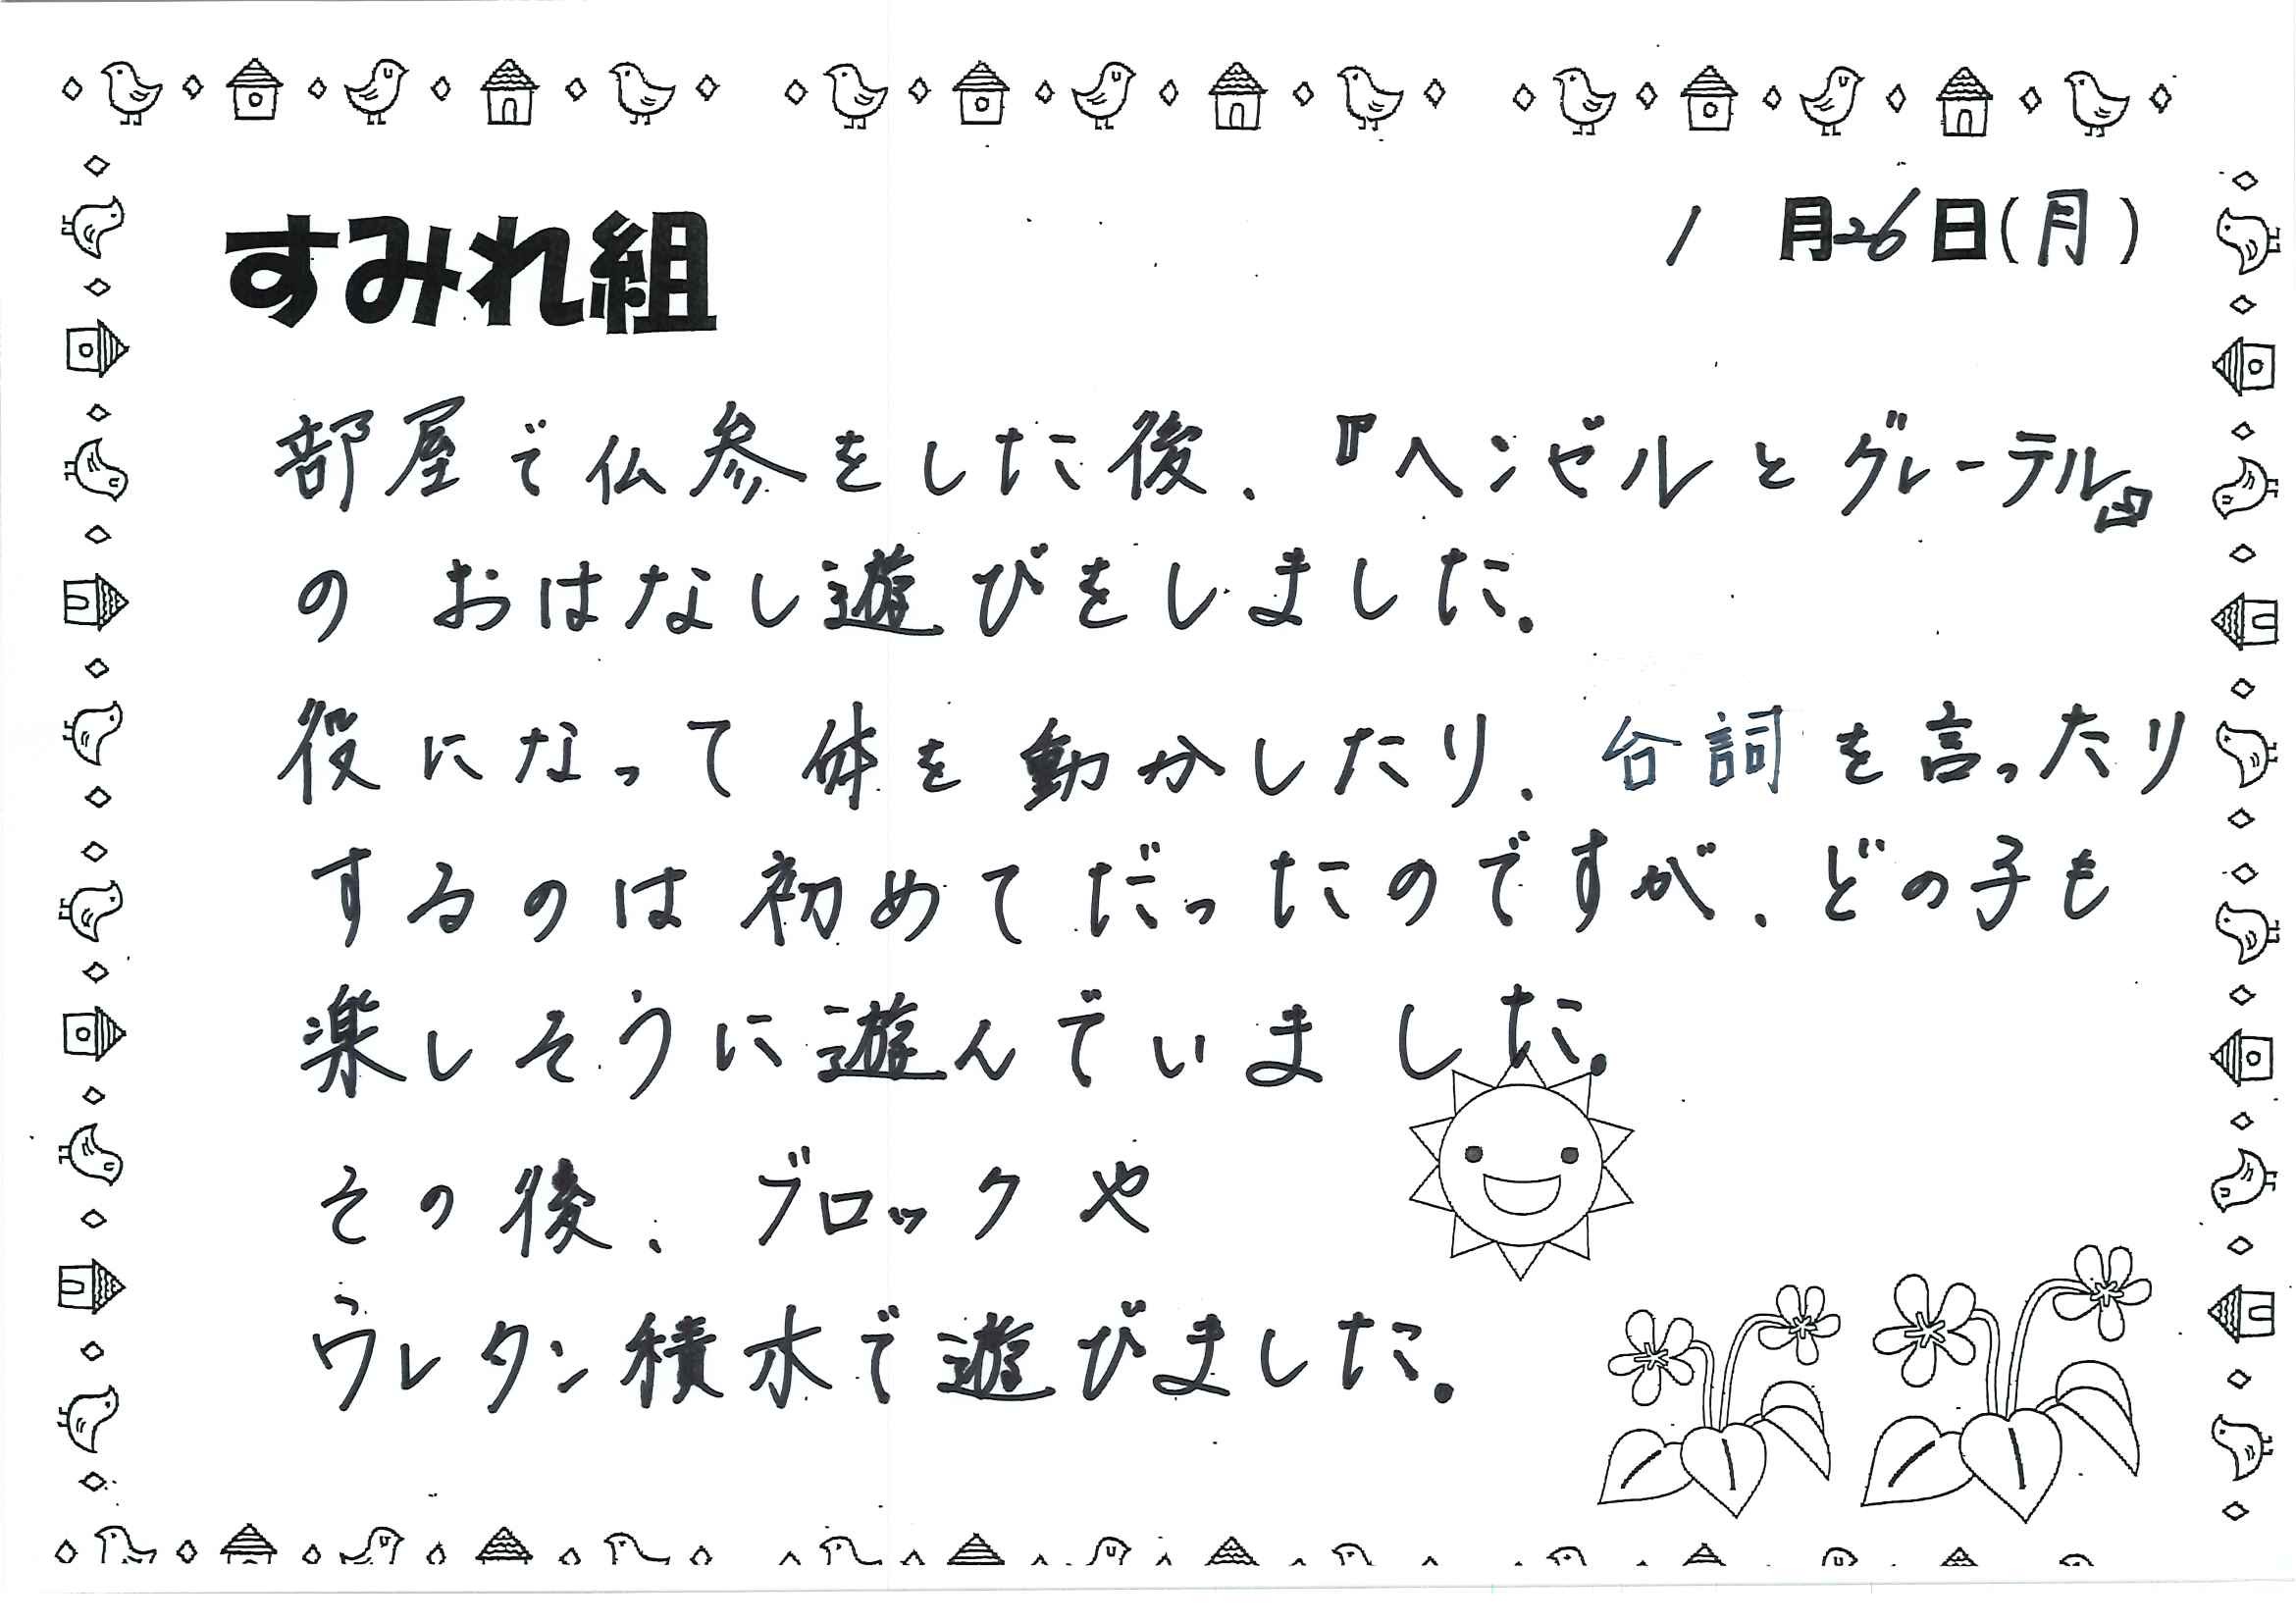 すみれ組
1月26日(月)
部屋で仏参をした後、『ヘンゼルとグレーテル』
のおはなし遊びをしました。
役になって体を動かしたり、台詞を言ったり
するのは初めてだったのですが、どの子も
楽しそうに遊んでいました。
その後、ブロックや
ウレタン積木で遊びました。